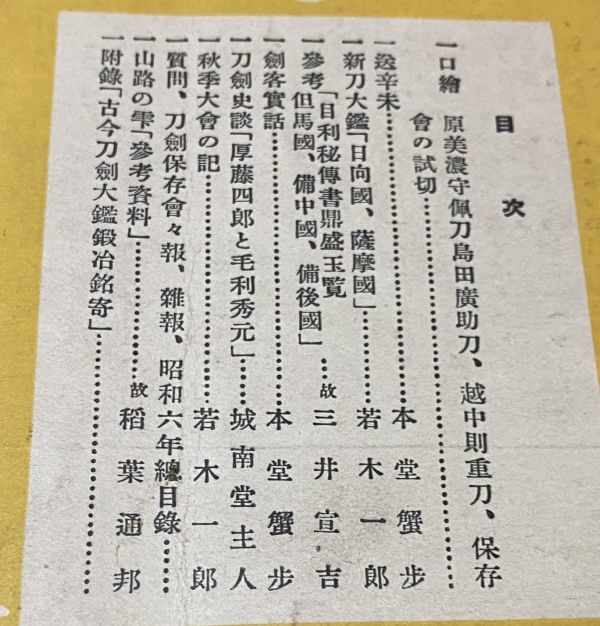 目次
一口繪 原美濃守佩刀島田廣助刀、越中則重刀、保存
會の試切……………………………
一送辛未……………………本堂蟹步
一新刀大鑑「日向國、薩摩國」………若木一郎
一參考「目利秘傳書鼎盛玉覽
但馬國、備中國、備後國」…故三井宣吉
一劍客實話……………………本堂蟹步
一刀劍史談「厚藤四郎と毛利秀元」……城南堂主人
一秋季大會の記……………………若木一郎
一質問、刀劍保存會々報、雜報、昭和六年總目錄……
一山路の雫「參考資料」……………故稻葉通邦
一附錄「古今刀劍大鑑鍛冶銘寄」……………………